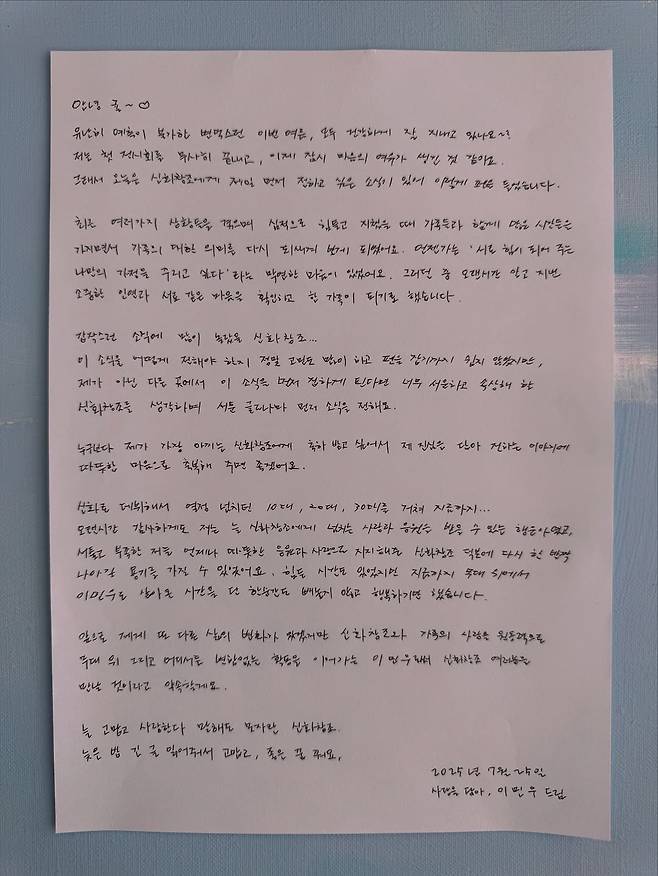 안녕 귤~♡
유난히 예측이 불가한 변덕스런 이번 여름, 모두 건강하게 잘 지내고 있나요~?
저는 첫 전시회를 무사히 끝내고, 이제 잠시 마음의 여유가 생긴 것 같아요.
그래서 오늘은 신화창조에게 제일 먼저 전하고 싶은 소식이 있어 이렇게 펜을 들었습니다.
최근 여러가지 상황들을 겪으며 심적으로 힘들고 지쳤을 때 가족들과 함께 많은 시간들을
가지면서 가족의 대한 의미를 다시 되새기게 되었어요. 언젠가는 '서로 힘이 되어 주는
나만의 가정을 꾸리고 싶다'라는 막연한 마음이 있었어요. 그러던 중 오랜시간 알고 지낸
소중한 인연과 서로 같은 마음을 확인하고 한 가족이 되기로 했습니다.
갑작스런 소식에 많이 놀랐을 신화창조...
이 소식을 어떻게 전해야 하지 정말 고민도 많이 하고 펜을 잡기까지 쉽지 않았지만,
제가 아닌 다른 곳에서 이 소식을 먼저 접하게 된다면 너무 서운하고 속상해 할
신화창조를 생각하며 서툰 글로나마 먼저 소식을 전해요.
누구보다 제가 가장 아끼는 신화창조에게 축하 받고 싶어서 제 진심을 담아 전하는 이야기에
따뜻한 마음으로 축복해 주면 좋겠어요.
신화로 데뷔해서 열정 넘치던 10대, 20대, 30대를 거쳐 지금까지...
오랜시간 감사하게도 저는 늘 신화창조에게 넘치는 사랑과 응원을 받을 수 있는 행운아였고,
서툴고 부족한 저를 언제나 따뜻한 응원과 사랑으로 지지해준 신화창조 덕분에 다시 한 발짝
나아갈 용기를 가질 수 있었어요. 힘든 시간도 있었지만 지금까지 무대 위에서
이민우로 살아온 시간을 단 한순간도 빼놓지 않고 행복하기만 했습니다.
앞으로 제게 또 다른 삶의 변화가 있겠지만 신화창조와 가족의 사랑을 원동력으로
무대 위 그리고 어디서든 변함없는 활동을 이어가는 이민우로써 신화창조 여러분을
만날 것이라고 약속할게요.
늘 고맙고 사랑한다 말해도 모자란 신화창조.
늦은 밤 긴 글 읽어줘서 고맙고, 좋은 꿈 꿔요,
2025년 7월 25일
사랑을 담아, 이민우 드림